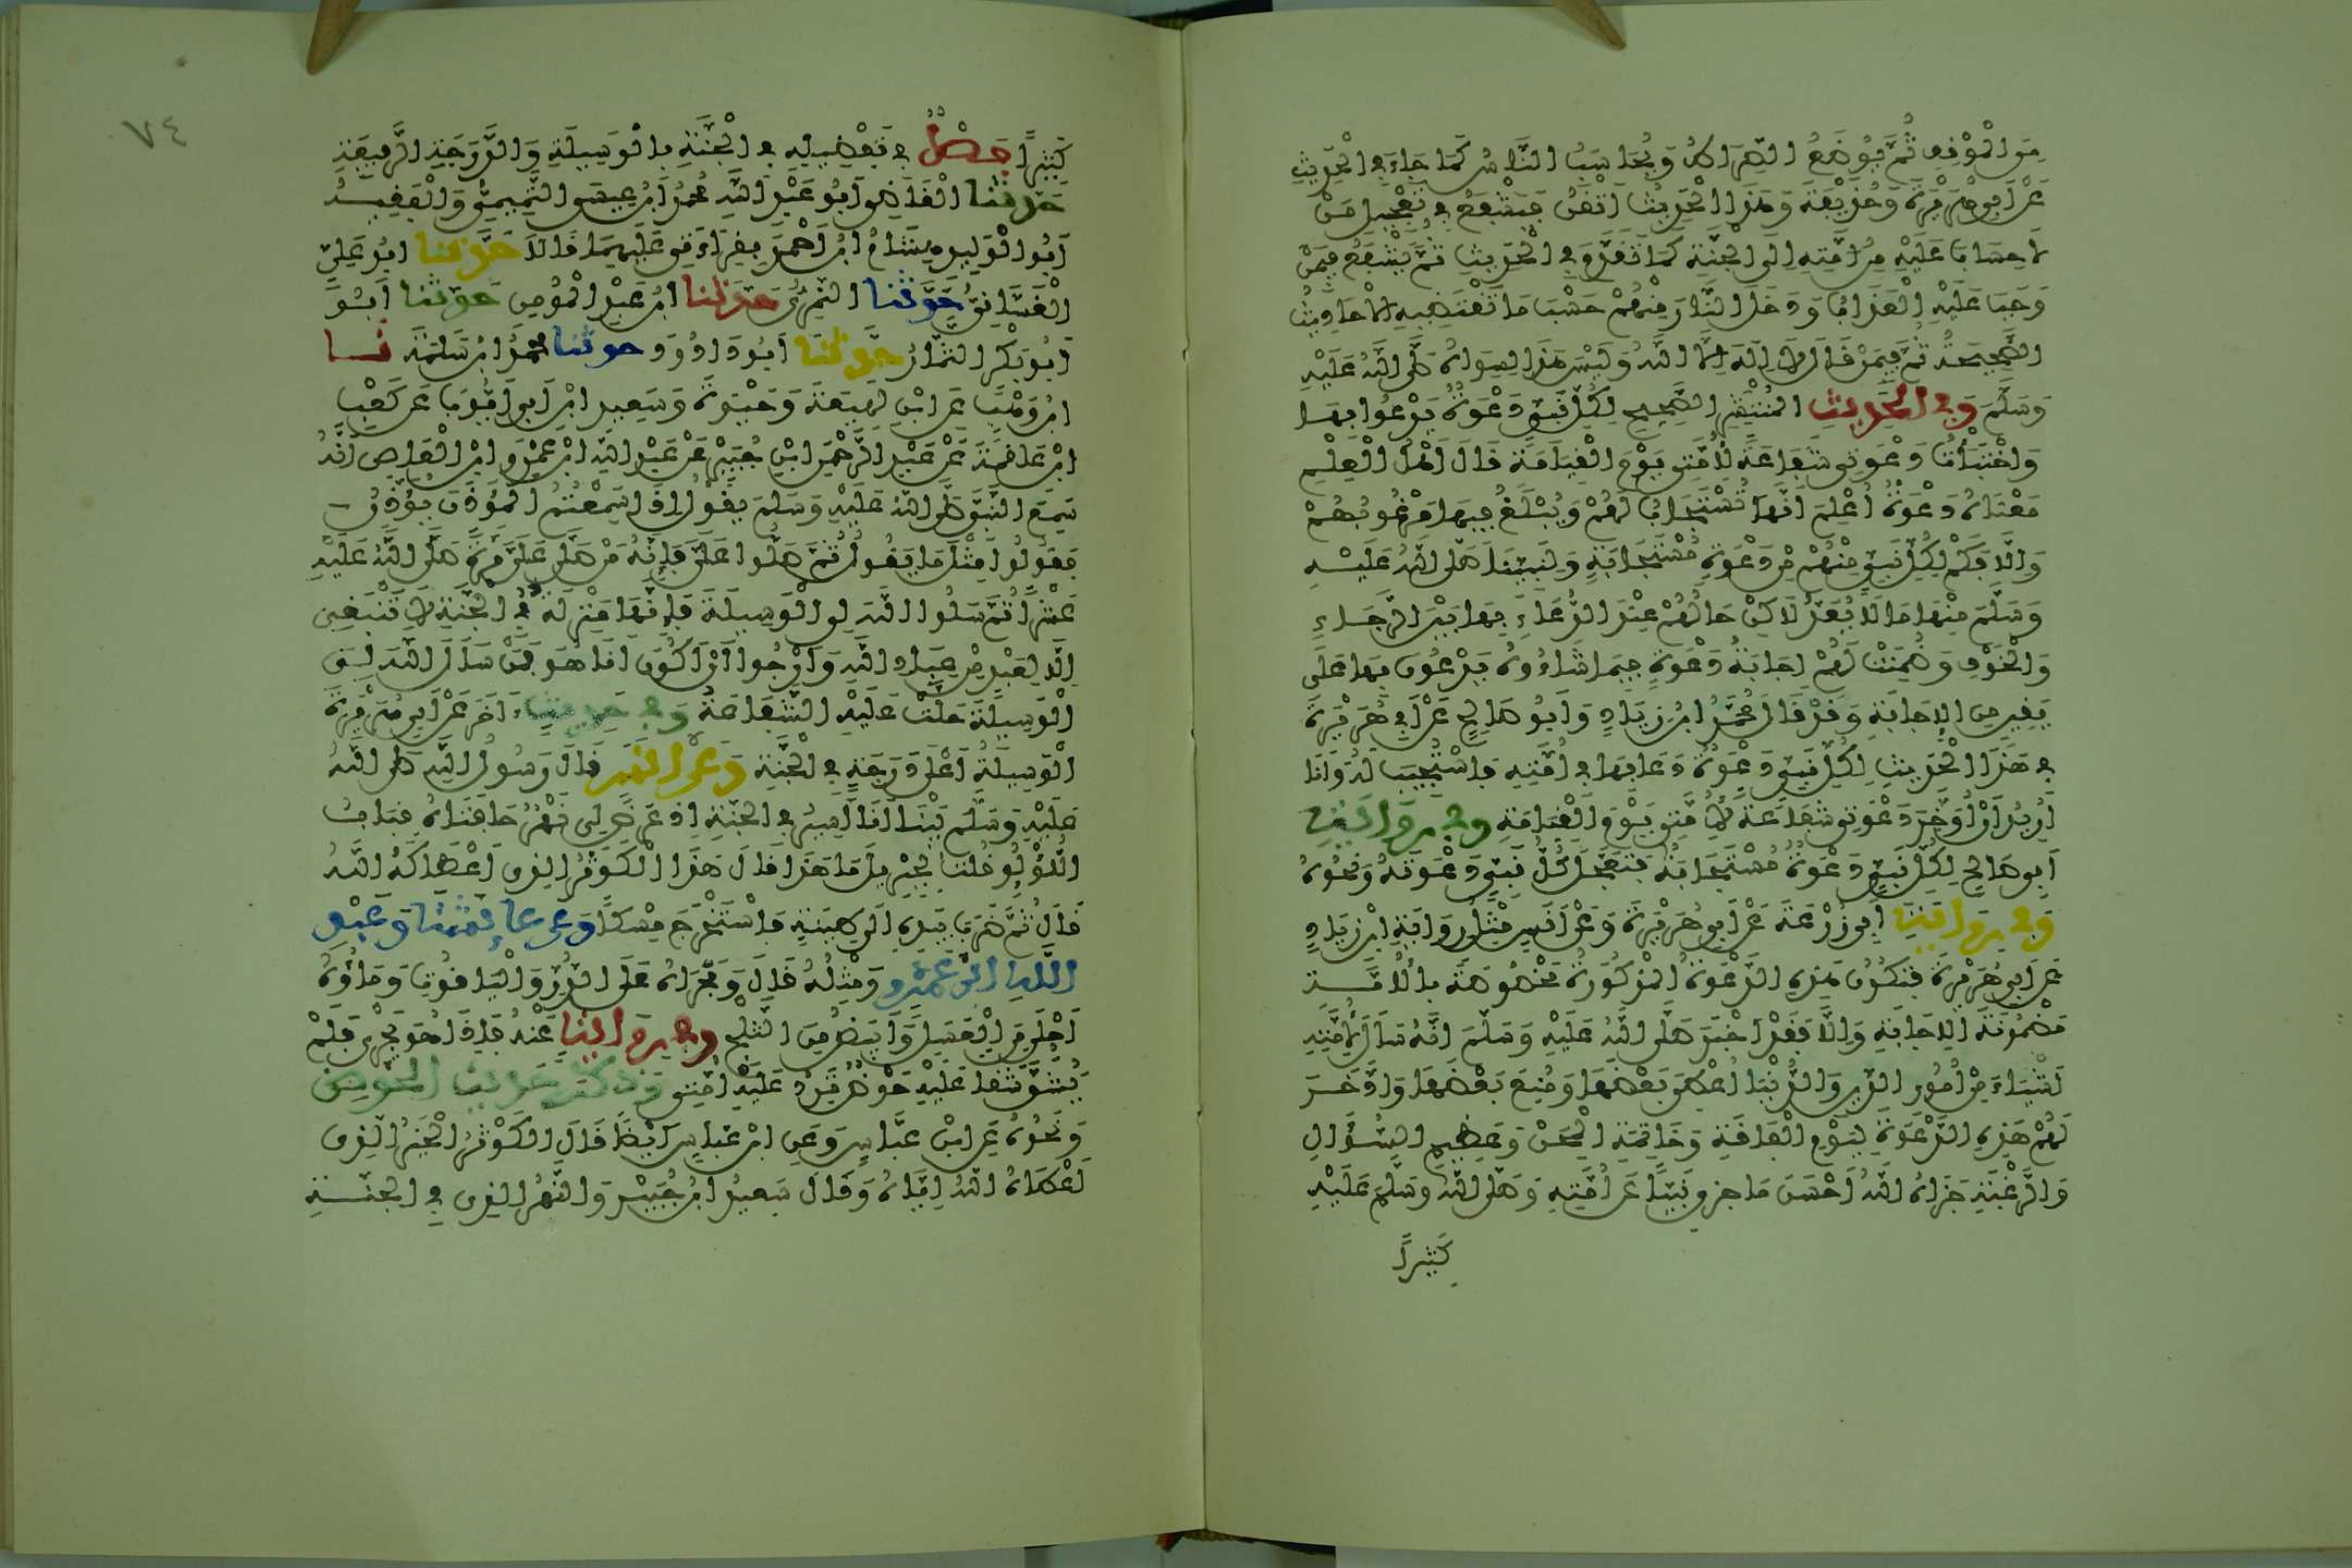 من الموقف ثم يوضع الصراط ويحاسب الناس كما جاء في الحديث
عن أبي هريرة وحذيفة وهذا الحديث أتقن فيشفع في تعجيل من
لا حساب عليه من أمته إلى الجنة كما تقدم في الحديث ثم يشفع فيمن
وجب عليه العذاب ودخل النار منهم حسب ما تقتضيه الأحاديث
الصحيحة ثم فيمن قال لا إله إلا الله وليس هذا لسواه صلى الله عليه
وسلم وفي الحديث المنتشر الصحيح لكل نبي دعوة يدعوا بها
واختبأت دعوتي شفاعة لأمتي يوم القيامة قال أهل العلم
معناه دعوة أعلم أنها تستجاب لهم ويبلغ فيها مرغوبهم
وإلا فكم لكل نبي منهم من دعوة مستجابة ولنبينا صلى الله عليه
وسلم منها ما لا يعد لاكن حالهم عند الدعاء بها بين الرجاء
والخوف وضمنت لهم إجابة دعوة فيما شاءوه يدعون بها على
يقين من الإجابة وقد قال محمد ابن زياد وأبو صالح عن أبي هريرة
في هذا الحديث لكل نبي دعوة دعا بها في أمته فاستجيب له وأنا
أريد أن أؤخر دعوتي شفاعة لأمتي يوم القيامة وفي رواية
أبي صالح لكل نبي دعوة مستجابة فتعجل كل نبي دعوته ونحوه
وفي رواية أبي زرعة عن أبي هريرة وعن أنس مثل رواية ابن زياد
عن أبي هريرة فتكون هذه الدعوة المذكورة مخصوصة بالأمة
مضمونة الإجابة وإلا فقد أخبر صلى الله عليه وسلم أنه سأل لأمته
أشياء من أمور الدين والدنيا أعطي بعضها ومنع بعضها وادخر
لهم هذه الدعوة ليوم الفاقة وخاتمة المحن وعظيم السؤال
والرغبة جزاه الله أحسن ما جزى نبيا عن أمته وصلى الله وسلم عليه
كثيرا
كثيرا فصل في تفضيله في الجنة بالوسيلة والدرجة الرفيعة
حدثنا القاضي أبو عبد الله محمد ابن عيسى التميمي والفقيه
أبو الوليد هشام ابن أحمد بقراءتي عليهما قالا حدثنا أبو علي
الغساني حدثنا النمري حدثنا ابن عبد المؤمن حدثنا أبو
أبو بكر التمار حدثنا أبو داوود حدثنا محمد ابن سلمة نا
ابن وهب عن ابن لهيعة وحيوة وسعيد ابن أبي أيوب عن كعب
ابن علقمة عن عبد الرحمن ابن جبير عن عبد الله ابن عمرو ابن العاص أنه
سمع النبي صلى الله عليه وسلم يقول إذا سمعتم المؤذن يؤذن
فقولوا مثل ما يقول ثم صلوا علي فإنه من صلى علي مرة صلى الله عليه
عشرا ثم سلوا الله لي الوسيلة فإنها منزلة في الجنة لا تنبغي
إلا لعبد من عباد الله وأرجوا أن أكون أنا هو فمن سأل الله لي
الوسيلة حلت عليه الشفاعة وفي حديث آخر عن أبي هريرة
الوسيلة أعلى درجة في الجنة وعن أنس قال رسول الله صلى الله
عليه وسلم بينا أنا أسير في الجنة إذ عرض لي نهر حافتاه قباب
اللؤلؤ قلت لجبريل ما هذا قال هذا الكوثر الذي أعطاكه الله
قال ثم ضرب بيده إلى طينته فاستخرج مسكا وعن عائشة وعبد
الله ابن عمرو ومثله قال ومجراه على الدر والياقوت وماؤه
أحلى من العسل وأبيض من الثلج وفي رواية عنه فإذا هو يجري فلم
يشق شقا عليه حوض ترد عليه أمتي وذكر حديث الحوض
ونحوه عن ابن عباس وعن ابن عباس أيضا قال الكوثر الخير الذي
أعطاه الله إياه وقال سعيد ابن جبير والنهر الذي في الجنة
٧٤